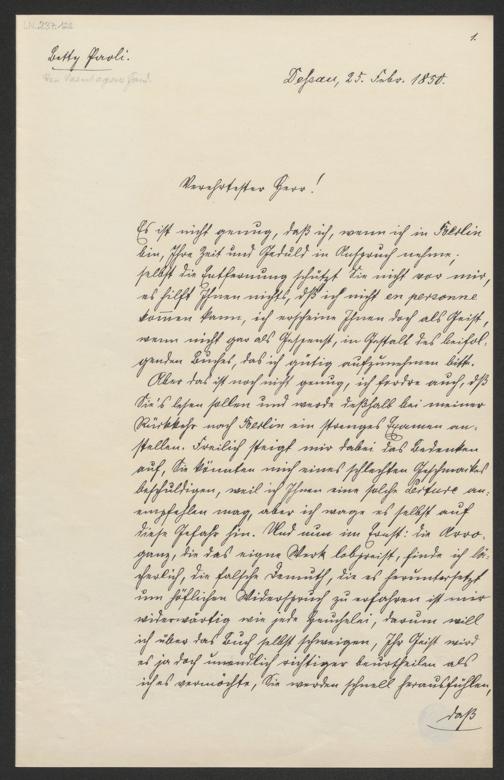 LN. 237.122
Betty Paoli.
1.
Dessau, 25. Febr. 1850.
Verehrtester Herr!
Es ist nicht genug, daß ich, wenn ich in Berlin
bin, Ihre Zeit und Geduld in Anspruch nehme;
selbst die Entfernung schützt Sie nicht vor mir,
es hilft Ihnen nichts, dß ich nicht en personne
kom̄en kann, ich erscheine Ihnen doch als Geist,
wenn nicht gar als Gespenst, in Gestalt des beifol-
genden Buches, das ich gütig aufzunehmen bitte.
Aber das ist noch nicht genug, ich fordre auch, dß
Sie's lesen sollen und werde deßhalb bei meiner
Rückkehr nach Berlin ein strenges Examen an-
stellen. Freilich steigt mir dabei das Bedenken
auf, Sie könnten mich eines schlechten Geschmackes
beschuldigen, weil ich Ihnen eine solche Lecture an-
empfehlen mag, aber ich wage es selbst auf
diese Gefahr hin. Und nun im Ernst: die Arro-
ganz, die das eigne Werk lobpreist, finde ich lä-
cherlich, die falsche Demuth, die es heruntersetzt
um höflichen Widerspruch zu erfahren ist mir
widerwärtig wie jede Heuchelei, darum will
ich über das Buch selbst schweigen, Ihr Geist wird
es ja doch unendlich richtiger beurtheilen als
ich es vermöchte, Sie werden schnell herausfühlen,
daß